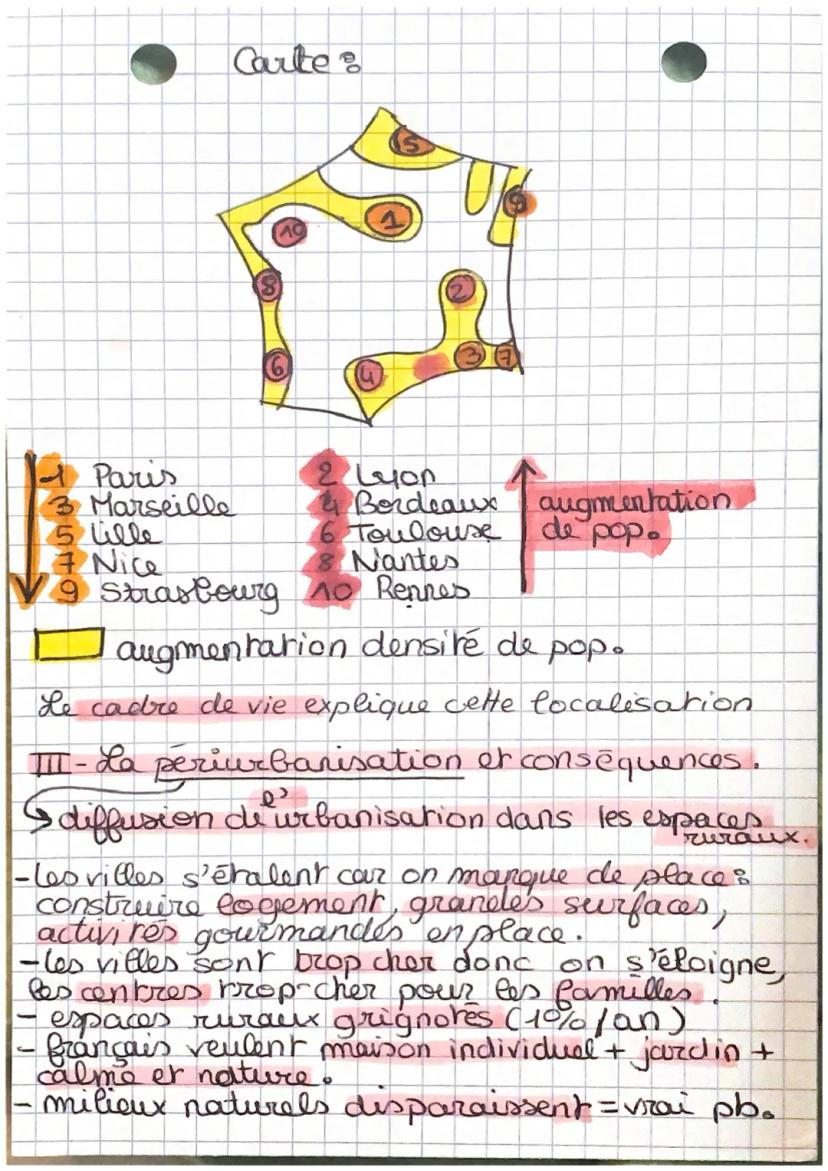 Carte :
5
9
1
10
8
2
6
4
3
7
1 Paris
3 Marseille
5 Lille
7 Nice
9 Strasbourg
2 Lyon
4 Bordeaux
6 Toulouse
8 Nantes
10 Rennes
augmentation
de pop.
augmentation densité de pop.
Le cadre de vie explique cette localisation
III - La périurbanisation et conséquences.
↳ diffusion de l'urbanisation dans les espaces
ruraux.
- les villes s'étalent car on manque de place :
construire logement, grandes surfaces,
activités gourmandes en place.
- les villes sont trop cher donc on s'éloigne,
les centres trop-cher pour les familles.
- espaces ruraux grignotés (1%/an)
- français veulent maison individuel + jardin +
calme et nature.
- milieux naturels disparaissent = vrai pb.